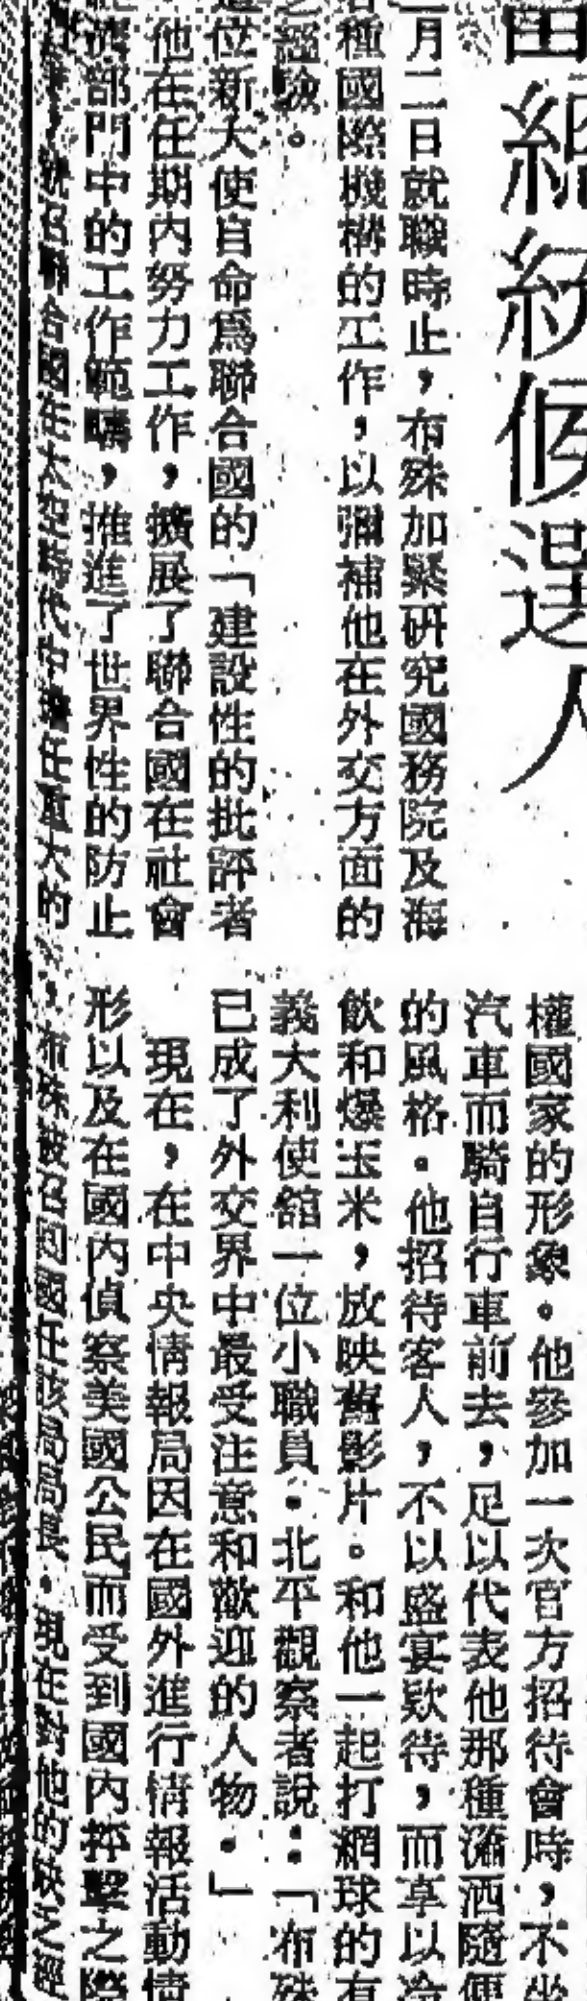 總統候選人
月二日就職時止，布殊加緊研究國務院及海
種國際機構的工作，以彌補他在外交方面的
經驗。
位新大使自命爲聯合國的「建設性的批評者
他在任期內努力工作，擴展了聯合國在社會
濟部門中的工作範疇，推進了世界性的防止
號召聯合國在太空時代中擔任重大的
權國家的形象。他參加一次官方招待會時，不坐
汽車而騎自行車前去，足以代表他那種瀟洒隨便
的風格。他招待客人，不以盛宴欵待，而享以冷
飲和爆玉米，放映舊影片。和他一起打網球的有
義大利使舘一位小職員。北平觀察者說：「布殊
已成了外交界中最受注意和歡迎的人物。」
現在，在中央情報局因在國外進行情報活動情
形以及在國內偵察美國公民而受到國內抨擊之際
，布殊被召回國任該局局長。現在對他的缺乏經